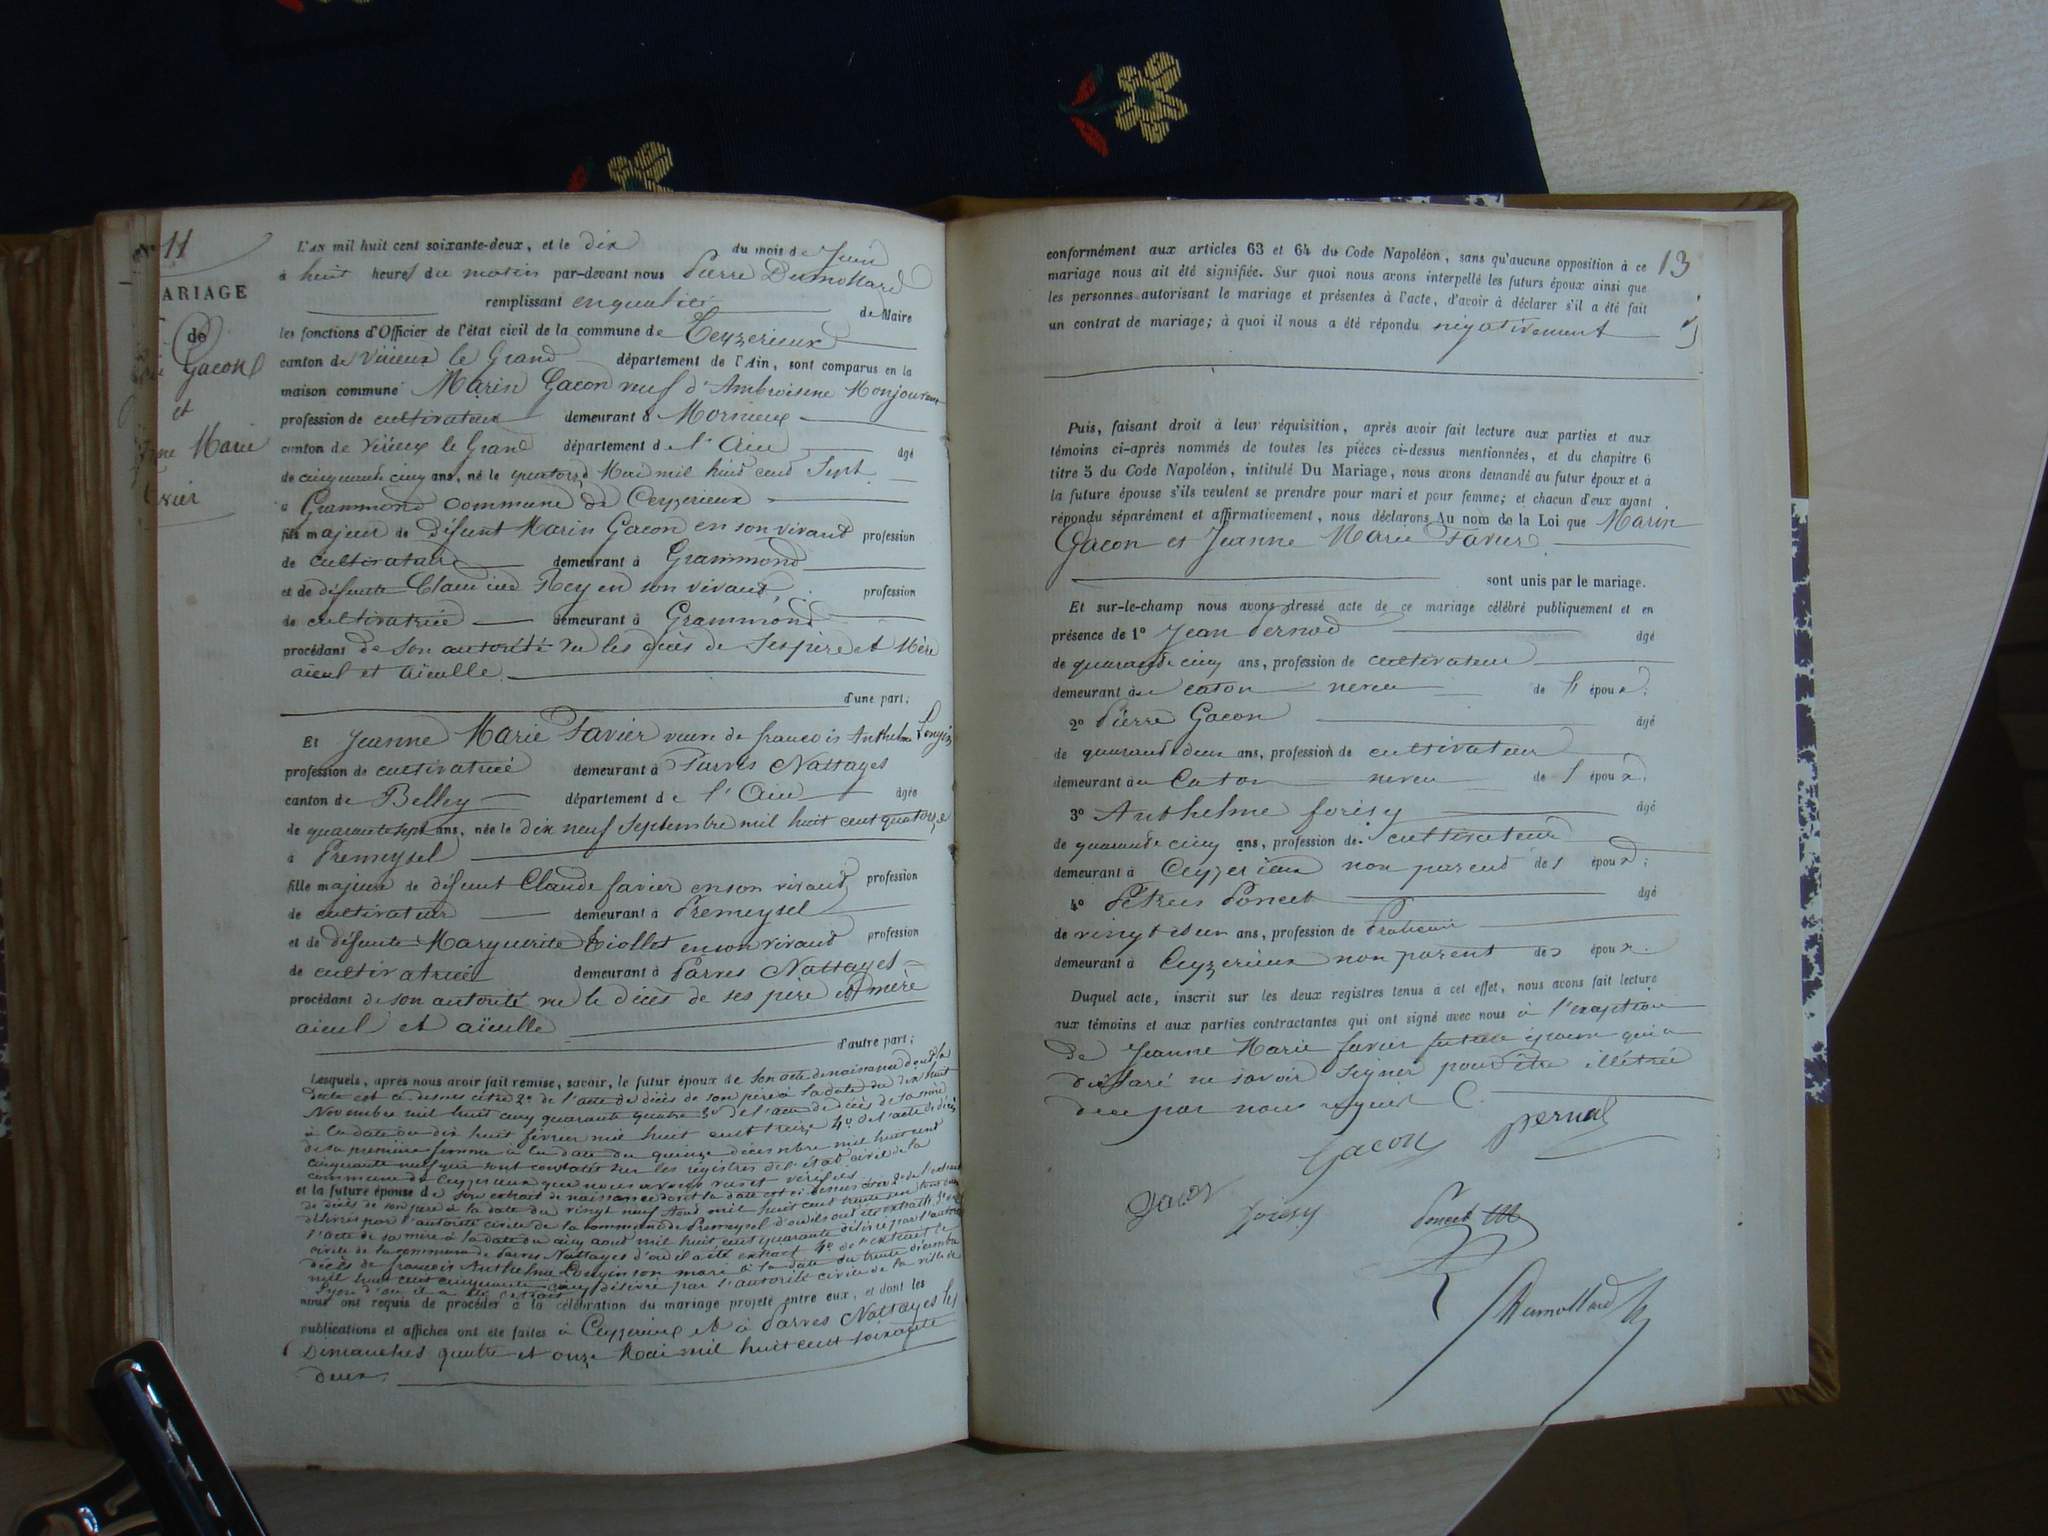 11
ARIAGE
de
Gacon
et
ne Marie
vier
L'AN mil huit cent soixante-deux, et le dix du mois de Juin
à huit heures du matin par-devant nous Pierre Dumollard
remplissant en qualité de Maire
les fonctions d'Officier de l'état civil de la commune de Ceyzerieux
canton de Virieux le Grand département de l'Ain, sont comparus en la
maison commune Marin Gacon veuf d'Ambroisine Monjouvan
profession de cultivateur demeurant à Mornieux
canton de Virieux le Grand département de l'Ain âgé
de cinquante cinq ans, né le quatorze Mai mil huit cent Sept
à Grammond commune de Ceyzerieux
fils majeur de défunt Marin Gacon en son vivant profession
de cultivateur demeurant à Grammond
et de défunte Claudine Rey en son vivant profession
de cultivatrice demeurant à Grammond
procédant de son autorité vu les décès de Ses père et Mère
aïeul et aïeulle
d'une part;
Et Jeanne Marie Favier veuve de francois Anthelme Longin
profession de cultivatrice demeurant à Parves Nattages
canton de Belley département de l'Ain âgée
de quarante sept ans, née le dix neuf Septembre mil huit cent quatorze
à Premeysel
fille majeure de défunt Claude favier en son vivant profession
de cultivateur demeurant à Premeysel
et de défunte Marguerite Tiollet en son vivant profession
de cultivatrice demeurant à Parves Nattages
procédant de son autorité vu le décès de ses père et mère
aïeul et aïeulle
d'autre part;
Lesquels, après nous avoir fait remise, savoir, le futur époux de son acte de naissance dont la
date est ci dessus citée 2º de l'acte de décès de son père à la date du dix huit
Novembre mil huit cent quarante quatre 3º de l'acte de décès de sa mère
à la date du dix huit février mil huit cent treize 4º de l'acte de décès
de sa première femme à la date du quinze décembre mil huit cent
cinquante neuf qui sont constatés sur les registres de l'état civil de la
commune de Ceyzerieux que nous avons vus et vérifiés
et la future épouse de son extrait de naissance dont la date est ci dessus citée 2º de l'extrait
de décès de son père à la date du vingt neuf Aout mil huit cent trente un tous deux
délivrés par l'autorité civile de la commune de Premeysel d'où ils ont été extraits 3º de
l'acte de sa mère à la date du cinq aout mil huit cent quarante délivré par l'autorité
civile de la commune de Parves Nattages d'où il a été extrait 4º de l'extrait de
décès de francois Anthelme Longin son mari à la date du trente décembre
mil huit cent cinquante cinq délivré par l'autorité civile de la ville de
Lyon d'où il a été extrait
nous ont requis de procéder à la célébration du mariage projeté entre eux, et dont les
publications et affiches ont été faites à Ceyzerieux et à Parves Nattages les
Dimanches quatre et onze Mai mil huit cent soixante
deux
13
conformément aux articles 63 et 64 du Code Napoléon, sans qu'aucune opposition à ce
mariage nous ait été signifiée. Sur quoi nous avons interpellé les futurs époux ainsi que
les personnes autorisant le mariage et présentes à l'acte, d'avoir à déclarer s'il a été fait
un contrat de mariage; à quoi il nous a été répondu négativement
Puis, faisant droit à leur réquisition, après avoir fait lecture aux parties et aux
témoins ci-après nommés de toutes les pièces ci-dessus mentionnées, et du chapitre 6
titre 5 du Code Napoléon, intitulé Du Mariage, nous avons demandé au futur époux et à
la future épouse s'ils veulent se prendre pour mari et pour femme; et chacun d'eux ayant
répondu séparément et affirmativement, nous déclarons Au nom de la Loi que Marin
Gacon et Jeanne Marie Favier
sont unis par le mariage.
Et sur-le-champ nous avons dressé acte de ce mariage célébré publiquement et en
présence de 1º Jean Pernod âgé
de quarante cinq ans, profession de cultivateur
demeurant à Caton neveu de l' époux;
2º Pierre Gacon âgé
de quarante deux ans, profession de cultivateur
demeurant à Caton neveu de l' époux;
3º Anthelme forisy âgé
de quarante cinq ans, profession de cultivateur
demeurant à Ceyzerieux non parent des époux;
4º Pétrus Poncet âgé
de vingt et un ans, profession de Praticien
demeurant à Ceyzerieux non parent des époux.
Duquel acte, inscrit sur les deux registres tenus à cet effet, nous avons fait lecture
aux témoins et aux parties contractantes qui ont signé avec nous à l'exeption
de Jeanne Marie favier future épouse qui a
déclaré ne savoir signer pour être illétrée
de ce par nous requis
Gacon Pernod
Gacon forisy Poncet
Dumollard